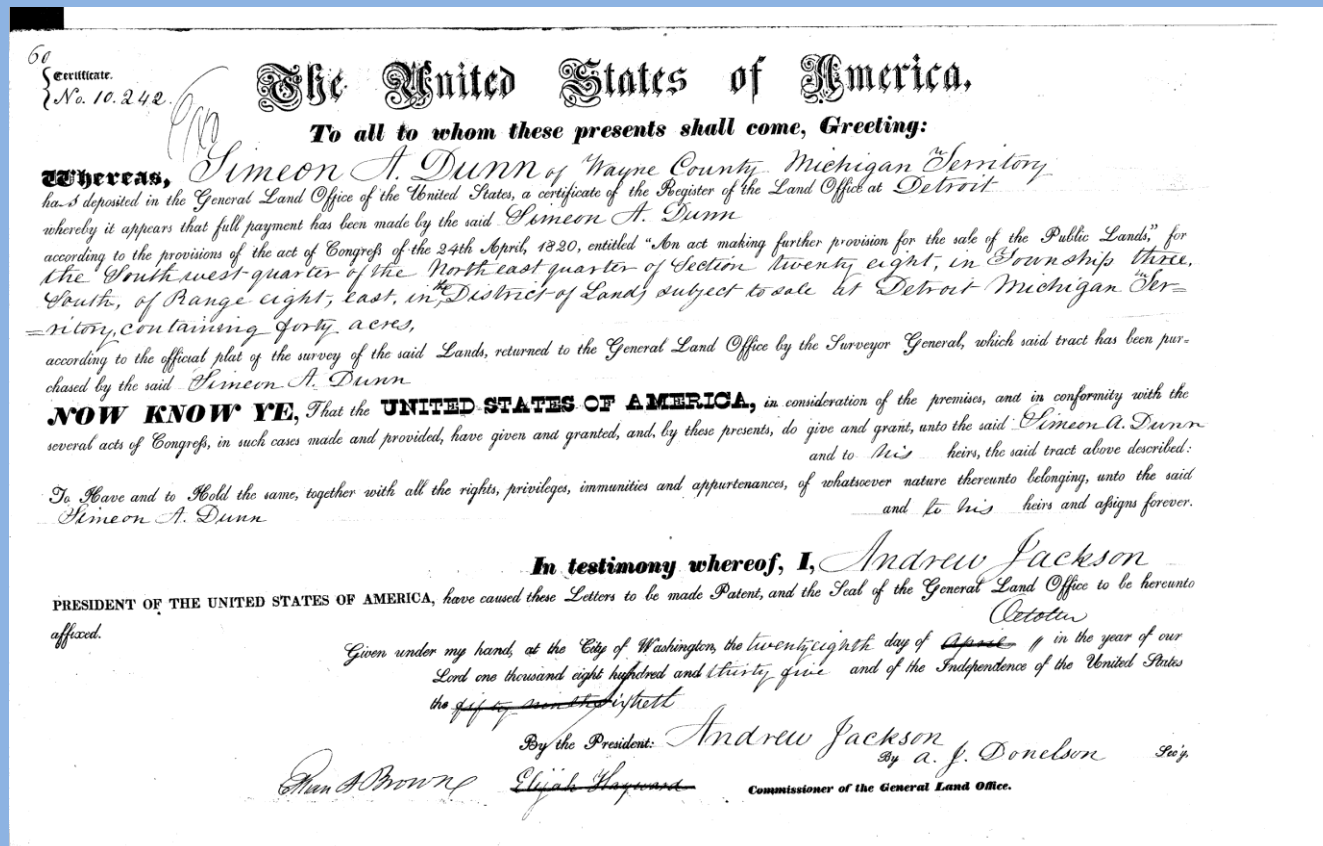 60
Certificate.
No. 10.242.
The United States of America,
To all to whom these presents shall come, Greeting:
Whereas, Simeon A. Dunn of Wayne County Michigan Territory
ha s deposited in the General Land Office of the United States, a certificate of the Register of the Land Office at Detroit
whereby it appears that full payment has been made by the said Simeon A. Dunn
according to the provisions of the act of Congreſs of the 24th April, 1820, entitled "An act making further provision for the sale of the Public Lands," for
the South west quarter of the North east quarter of Section twenty eight, in Township three,
South, of Range eight, east, in the District of Lands subject to sale at Detroit Michigan Ter=
=ritory, containing forty acres,
according to the official plat of the survey of the said Lands, returned to the General Land Office by the Surveyor General, which said tract has been pur-
chased by the said Simeon A. Dunn
NOW KNOW YE, That the UNITED STATES OF AMERICA, in consideration of the premises, and in conformity with the
several acts of Congreſs, in such cases made and provided, have given and granted, and, by these presents, do give and grant, unto the said Simeon A. Dunn
and to his heirs, the said tract above described:
To Have and to Hold the same, together with all the rights, privileges, immunities and appurtenances, of whatsoever nature thereunto belonging, unto the said
Simeon A. Dunn and to his heirs and aſsigns forever.
In testimony whereof, I, Andrew Jackson
PRESIDENT OF THE UNITED STATES OF AMERICA, have caused these Letters to be made Patent, and the Seal of the General Land Office to be hereunto
affixed.
October
Given under my hand, at the City of Washington, the twentyeighth day of April in the year of our
Lord one thousand eight hundred and thirty five and of the Independence of the United States
the fifty ninth sixtieth
By the President: Andrew Jackson
By A. J. Donelson Sec'y.
Ethan A Brown Elijah Hayward Commissioner of the General Land Office.